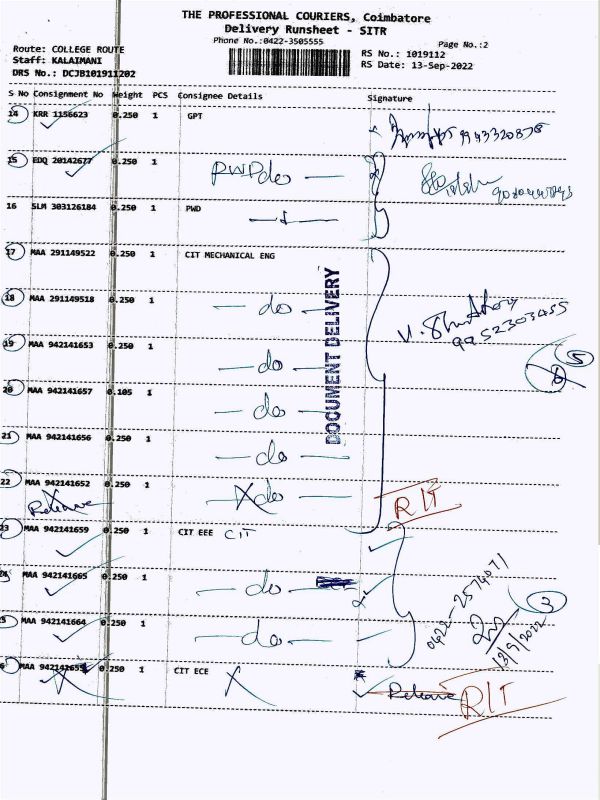 THE PROFESSIONAL COURIERS, Coimbatore
Delivery Runsheet - SITR
Phone No.:0422-3505555
Page No.:2
Route: COLLEGE ROUTE
Staff: KALAIMANI
DRS No.: DCJB101911202
RS No.: 1019112
RS Date: 13-Sep-2022
S No Consignment No Weight PCS Consignee Details Signature
14 KRR 1156623 0.250 1 GPT
15 EDQ 20142677 0.250 1 PWD do
16 SLM 303126184 0.250 1 PWD
17 MAA 291149522 0.250 1 CIT MECHANICAL ENG
18 MAA 291149518 0.250 1 — do —
DOCUMENT DELIVERY
9952303455
19 MAA 942141653 0.250 1 — do —
5
20 MAA 942141657 0.105 1 — do —
21 MAA 942141656 0.250 1 — do —
22 MAA 942141652 0.250 1 do —
Release
R/T
23 MAA 942141659 0.250 1 CIT EEE CIT
24 MAA 942141665 0.250 1 — do —
0422-2574071
3
MAA 942141664 0.250 1 — do —
13/9/2022
0.250 1 CIT ECE
Release R/T